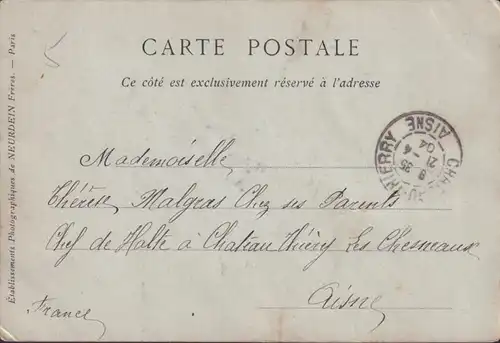 5
CARTE POSTALE
Ce côté est exclusivement réservé à l'adresse
Etablissements Photographiques de NEURDEIN Frères. — Paris
CHATEAU-THIERRY
AISNE
8 35
21 - 4
04
Mademoiselle
Thérèse Malgras Chez ses Parents
Chef de Halte à Chateau Thierry Les Chesneaux
Aisne
France